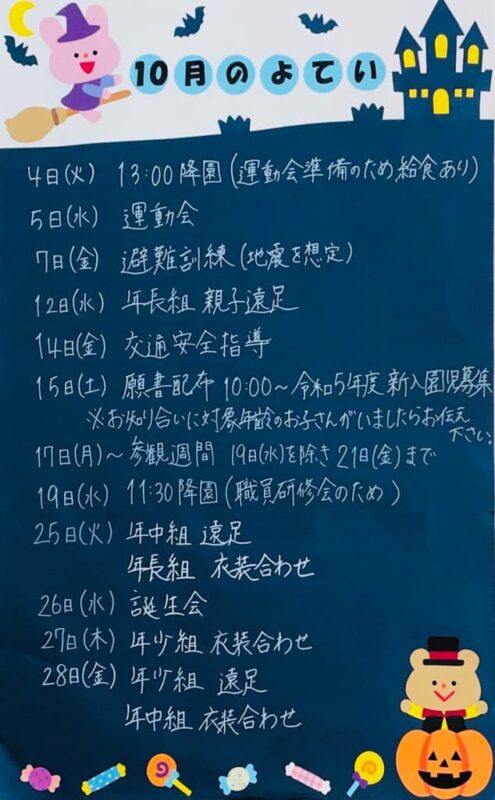 10月のよてい
4日(火) 13:00降園(運動会準備のため給食あり)
5日(水) 運動会
7日(金) 避難訓練(地震を想定)
12日(水) 年長組 親子遠足
14日(金) 交通安全指導
15日(土) 願書配布 10:00~令和5年度 新入園児募集
※お知り合いに対象年齢のお子さんがいましたらお伝え
下さい
17日(月)~ 参観週間 19日(水)を除き 21日(金)まで
19日(水) 11:30降園(職員研修会のため)
25日(火) 年中組 遠足
年長組 衣装合わせ
26日(水) 誕生会
27日(木) 年少組 衣装合わせ
28日(金) 年少組 遠足
年中組 衣装合わせ